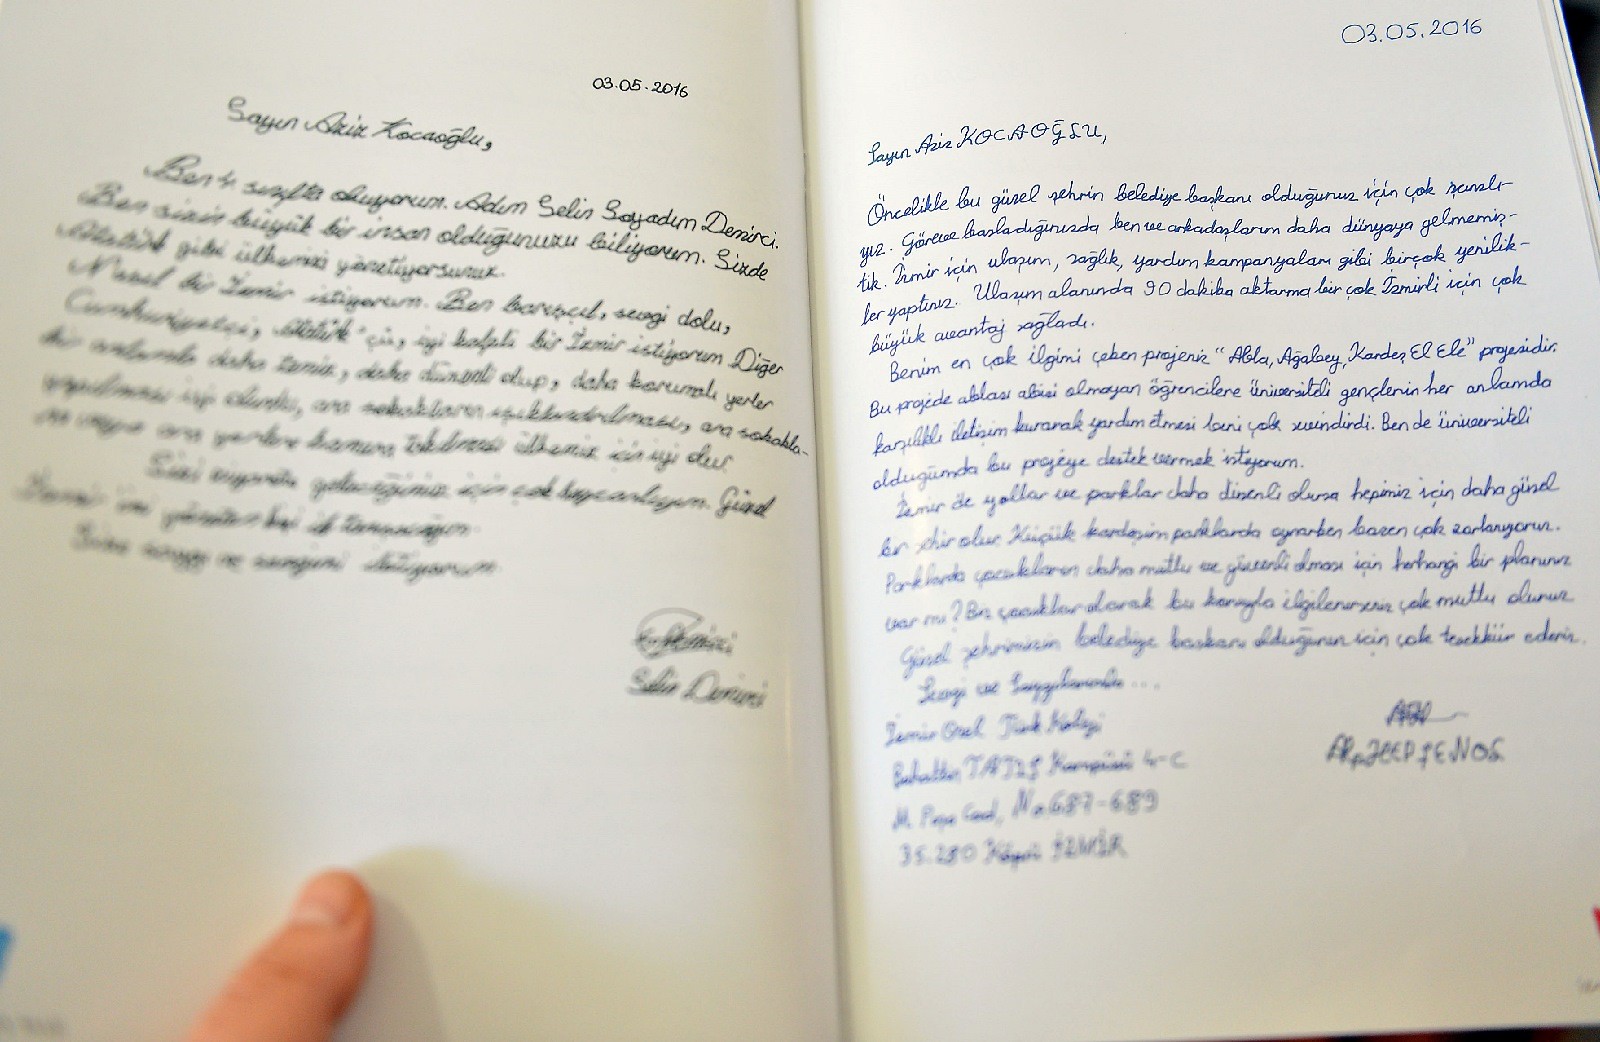 03.05.2016
Sayın Aziz Kocaoğlu,
Ben 4. sınıfta okuyorum. Adım Selin Soyadım Demirci.
Ben sizin büyük bir insan olduğunuzu biliyorum. Sizde
Atatürk gibi ülkemizi yönetiyorsunuz.
Nasıl bir İzmir istiyorum. Ben barışçıl, sevgi dolu,
Cumhuriyetçi, Atatürk'çü, iyi kalpli bir İzmir istiyorum Diğer
bir anlamda daha temiz, daha düzenli olup, daha korumalı yerler
yapılması iyi olurdu, ara sokakların ışıklandırılması, ara sokakla-
ra veya ara yerlere kamera takılması ülkemiz için iyi olur.
Sizi ziyarete geleceğimiz için çok heyecanlıyım. Güzel
İzmir'imi yöneten kişi ile tanışacağım.
Size saygı ve sevgimi iletiyorum
Selin Demirci
03.05.2016
Sayın Aziz KOCAOĞLU,
Öncelikle bu güzel şehrin belediye başkanı olduğunuz için çok şanslı-
yız. Göreve başladığınızda ben ve arkadaşlarım daha dünyaya gelmemiş-
tik. İzmir için ulaşım, sağlık, yardım kampanyaları gibi birçok yenilik-
ler yaptınız. Ulaşım alanında 90 dakika aktarma bir çok İzmirli için çok
büyük avantaj sağladı.
Benim en çok ilgimi çeken projeniz "Abla, Ağabey, Kardeş El Ele" projesidir.
Bu projede ablası abisi olmayan öğrencilere üniversiteli gençlerin her anlamda
karşılıklı iletişim kurarak yardım etmesi beni çok sevindirdi. Ben de üniversiteli
olduğumda bu projeye destek vermek istiyorum.
İzmir'de yollar ve parklar daha düzenli olursa hepimiz için daha güzel
bir şehir olur. Küçük kardeşim parklarda oynarken bazen çok zorlanıyoruz.
Parklarda çocukların daha mutlu ve güvenli olması için herhangi bir planınız
var mı? Biz çocuklar olarak bu konuyla ilgilenirseniz çok mutlu oluruz
Güzel şehrimizin belediye başkanı olduğunuz için çok teşekkür ederiz.
Sevgi ve Saygılarımla ...
İzmir Özel Türk Koleji
Bahattin TATIŞ Kampüsü 4-C
M. Paşa Cad, No:687-689
35.280 İZMİR